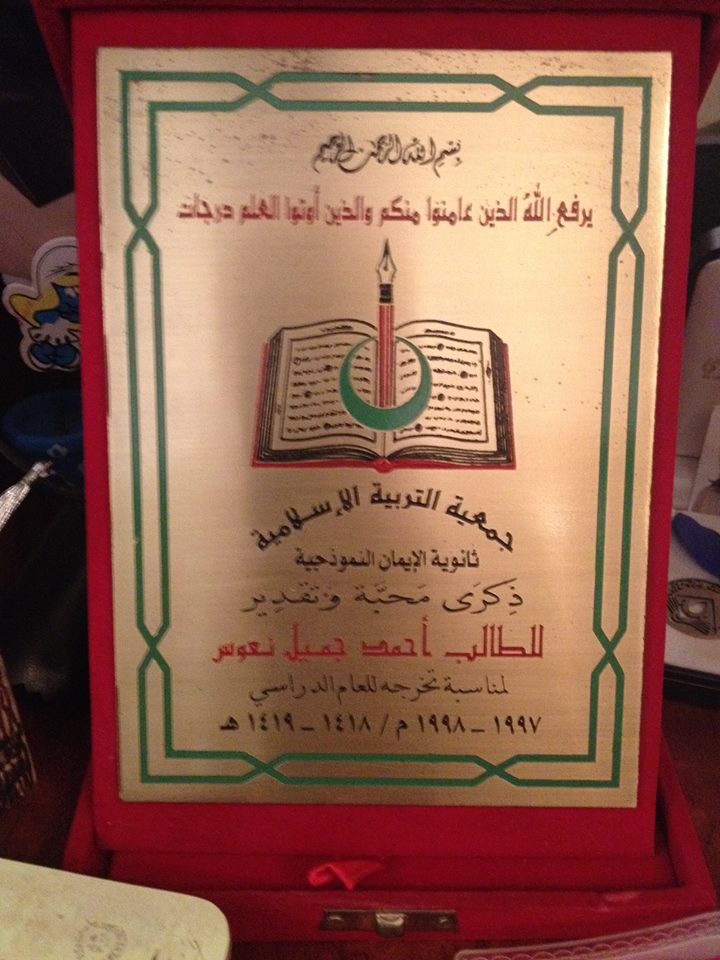 بسم الله الرحمن الرحيم
يرفع الله الذين ءامنوا منكم والذين أوتوا العلم درجات
جمعية التربية الإسلامية
ثانوية الإيمان النموذجية
ذِكرَى مَحبَّة وَتقدِير
للطالب أحمد جميل نعوس
لمناسبة تخرجه للعام الدراسي
١٩٩٧ - ١٩٩٨ م / ١٤١٨ - ١٤١٩ هـ